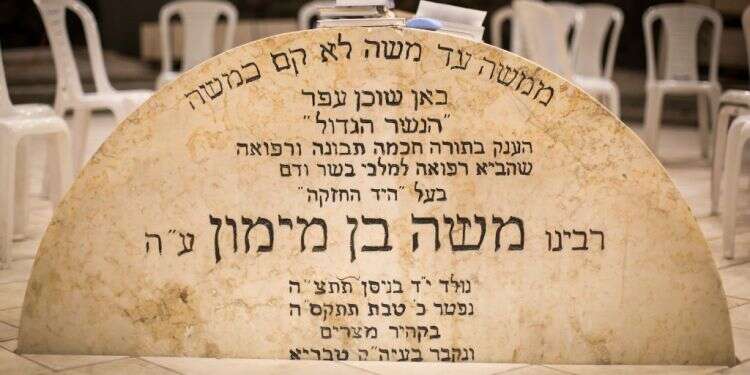 ממשה עד משה לא קם כמשה
כאן שוכן עפר
"הנשר הגדול"
הענק בתורה חכמה תבונה ורפואה
שהביא רפואה למלכי בשר ודם
בעל "היד החזקה"
רבינו משה בן מימון ע"ה
נולד י"ד בניסן תתצ"ה
נפטר כ' טבת תתקס"ה
בקהיר מצרים
ונקבר בעיה"ק טבריא